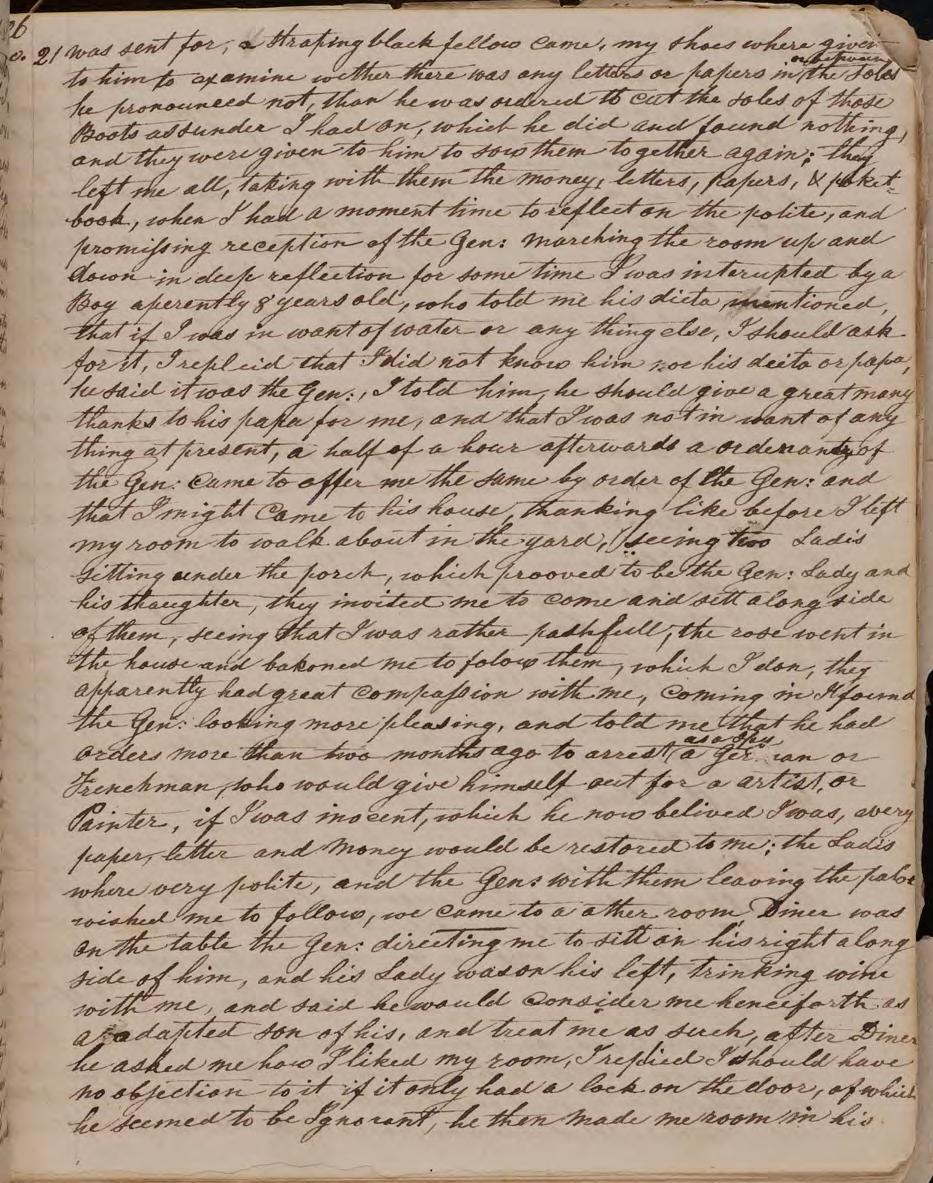 26
o. 21 was sent for, a straping black fellow came, my shoes where given
to him to examine wether there was any letters or papers in or between the soles
he pronounced not, than he was ordered to cut the soles of those
Boots assunder I had on, which he did and found nothing,
and they were given to him to sow them together again; they
left me all, taking with them the money, letters, papers, & poket-
book, when I had a moment time to reflect on the polite, and
promissing reception of the Gen: marching the room up and
down in deep reflection for some time I was interupted by a
Boy aperently 8 years old, who told me his dieta mentioned,
that if I was in want of water or any thing else, I should ask
for it, I repleid that I did not know him nor his deita or papa,
he said it was the Gen:, I told him, he should give a great many
thanks to his papa for me, and that I was not in want of any
thing at present, a half of a hour afterwards a orderandy of
the Gen: came to offer me the same by order of the Gen: and
that I might came to his house, thanking like before I left
my room to walk about in the yard, seeing two Ladis
sitting under the porch, which prooved to be the Gen: Lady and
his thaughter, they invited me to come and sitt along side
of them, seeing that I was rather pashfull, the rose went in
the house and bakoned me to folow them, which I don, they
apparently had great compassion with me, coming in I found
the Gen: looking more pleasing, and told me that he had
orders more than two months ago to arrest as a Spy a German or
Frenchman, who would give himself out for a artist, or
Painter, if I was inocent, which he now belived I was, every
paper, letter and Money would be restored to me; the Ladis
where very polite, and the Gen: with them leaving the palor
wished me to follow, we came to a other room, Diner was
on the table the Gen: directing me to sitt on his right along
side of him, and his Lady was on his left, trinking wine
with me, and said he would consider me henceforth as
a adapted son of his, and treat me as such, after Diner
he asked me how I liked my room, I replied I should have
no objection to it if it only had a lock on the door, of which
he seemed to be Ignorant, he then made me room in his